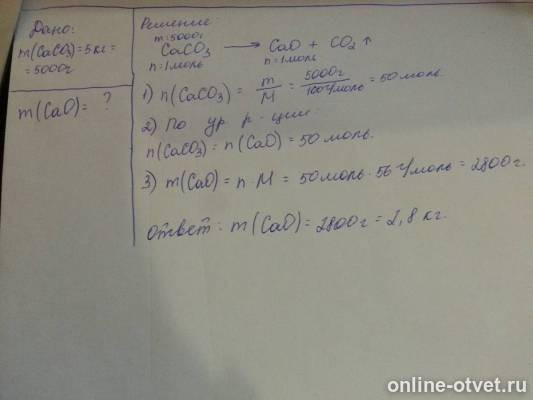 Дано:
m(CaCO₃)=5кг=
=5000г
m(CaO)= ?
Решение:
m=5000г
CaCO₃ ⟶ CaO + CO₂↑
n=1моль n=1моль
1) n(CaCO₃) = m/M = 5000г/100г/моль = 50 моль.
2) По ур. р-ции:
n(CaCO₃) = n(CaO) = 50 моль.
3) m(CaO) = n M = 50моль·56г/моль = 2800г.
Ответ: m(CaO) = 2800г = 2,8 кг.
online-otvet.ru